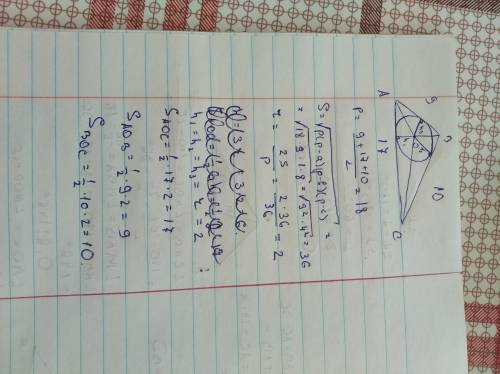 9 B 10
A 17 C
O
P = 9+17+10 / 2 = 18
S = √p(p-a)(p-b)(p-c) =
= √18·9·1·8 = √9²·4² = 36
r = 2S / P = 2·36 / 36 = 2
h₁ = h₂ = h₃ = r = 2
S AOC = ½·17·2 = 17
S AOB = ½·9·2 = 9
S BOC = ½·10·2 = 10